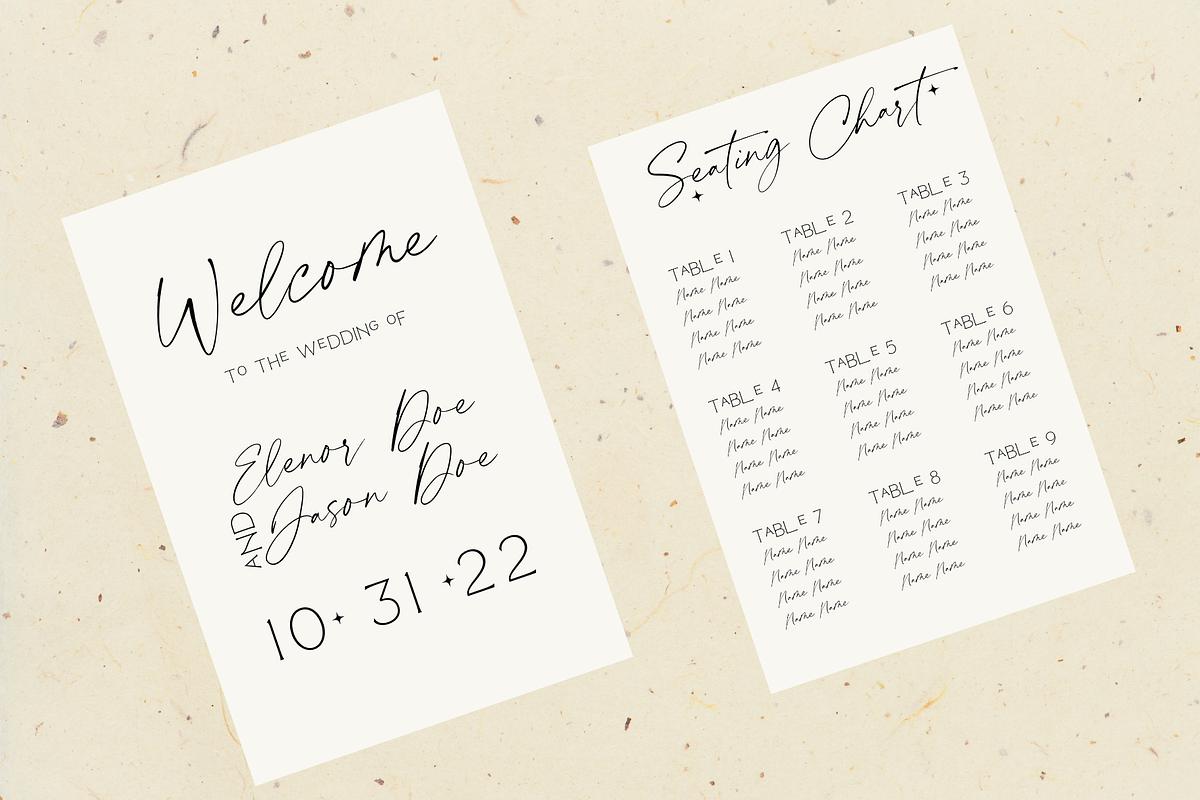 Welcome
TO THE WEDDING OF
Elenor Doe
AND Jason Doe
10 31 22
Seating Chart
TABLE 1
Name Name
Name Name
Name Name
Name Name
TABLE 2
Name Name
Name Name
Name Name
Name Name
TABLE 3
Name Name
Name Name
Name Name
Name Name
TABLE 4
Name Name
Name Name
Name Name
Name Name
TABLE 5
Name Name
Name Name
Name Name
Name Name
TABLE 6
Name Name
Name Name
Name Name
Name Name
TABLE 7
Name Name
Name Name
Name Name
Name Name
TABLE 8
Name Name
Name Name
Name Name
Name Name
TABLE 9
Name Name
Name Name
Name Name
Name Name